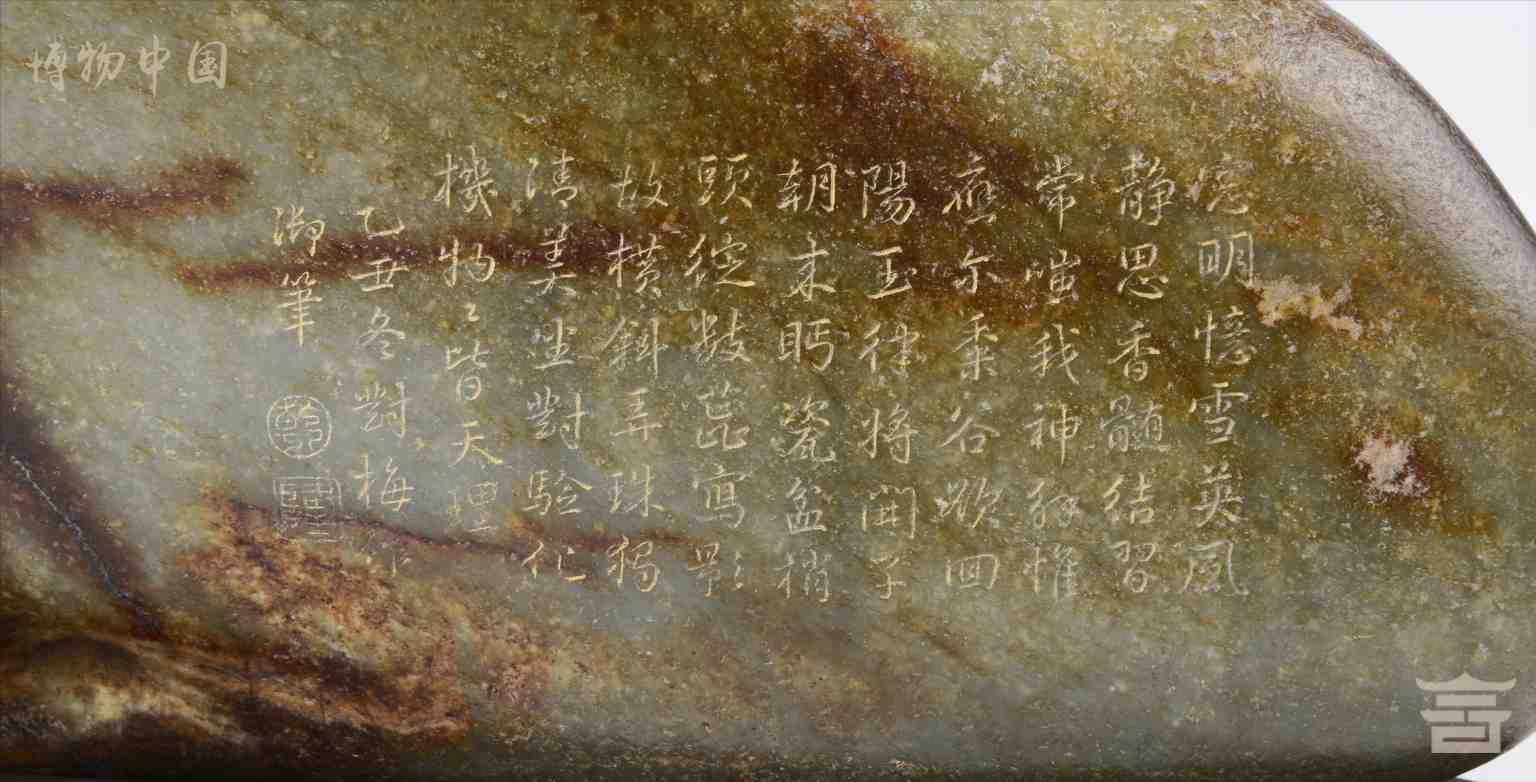 博物中国
窓明憶雪英風
静思香髓結習
常嗤我神移惟
應尔黍谷欲回
陽玉律将開子
朝来眄瓷盆梢
頭綻数蕋寫影
故横斜弄珠獨
清美坐對驗化
機物〻皆天理
乙丑冬對梅作
御筆
乾
隆